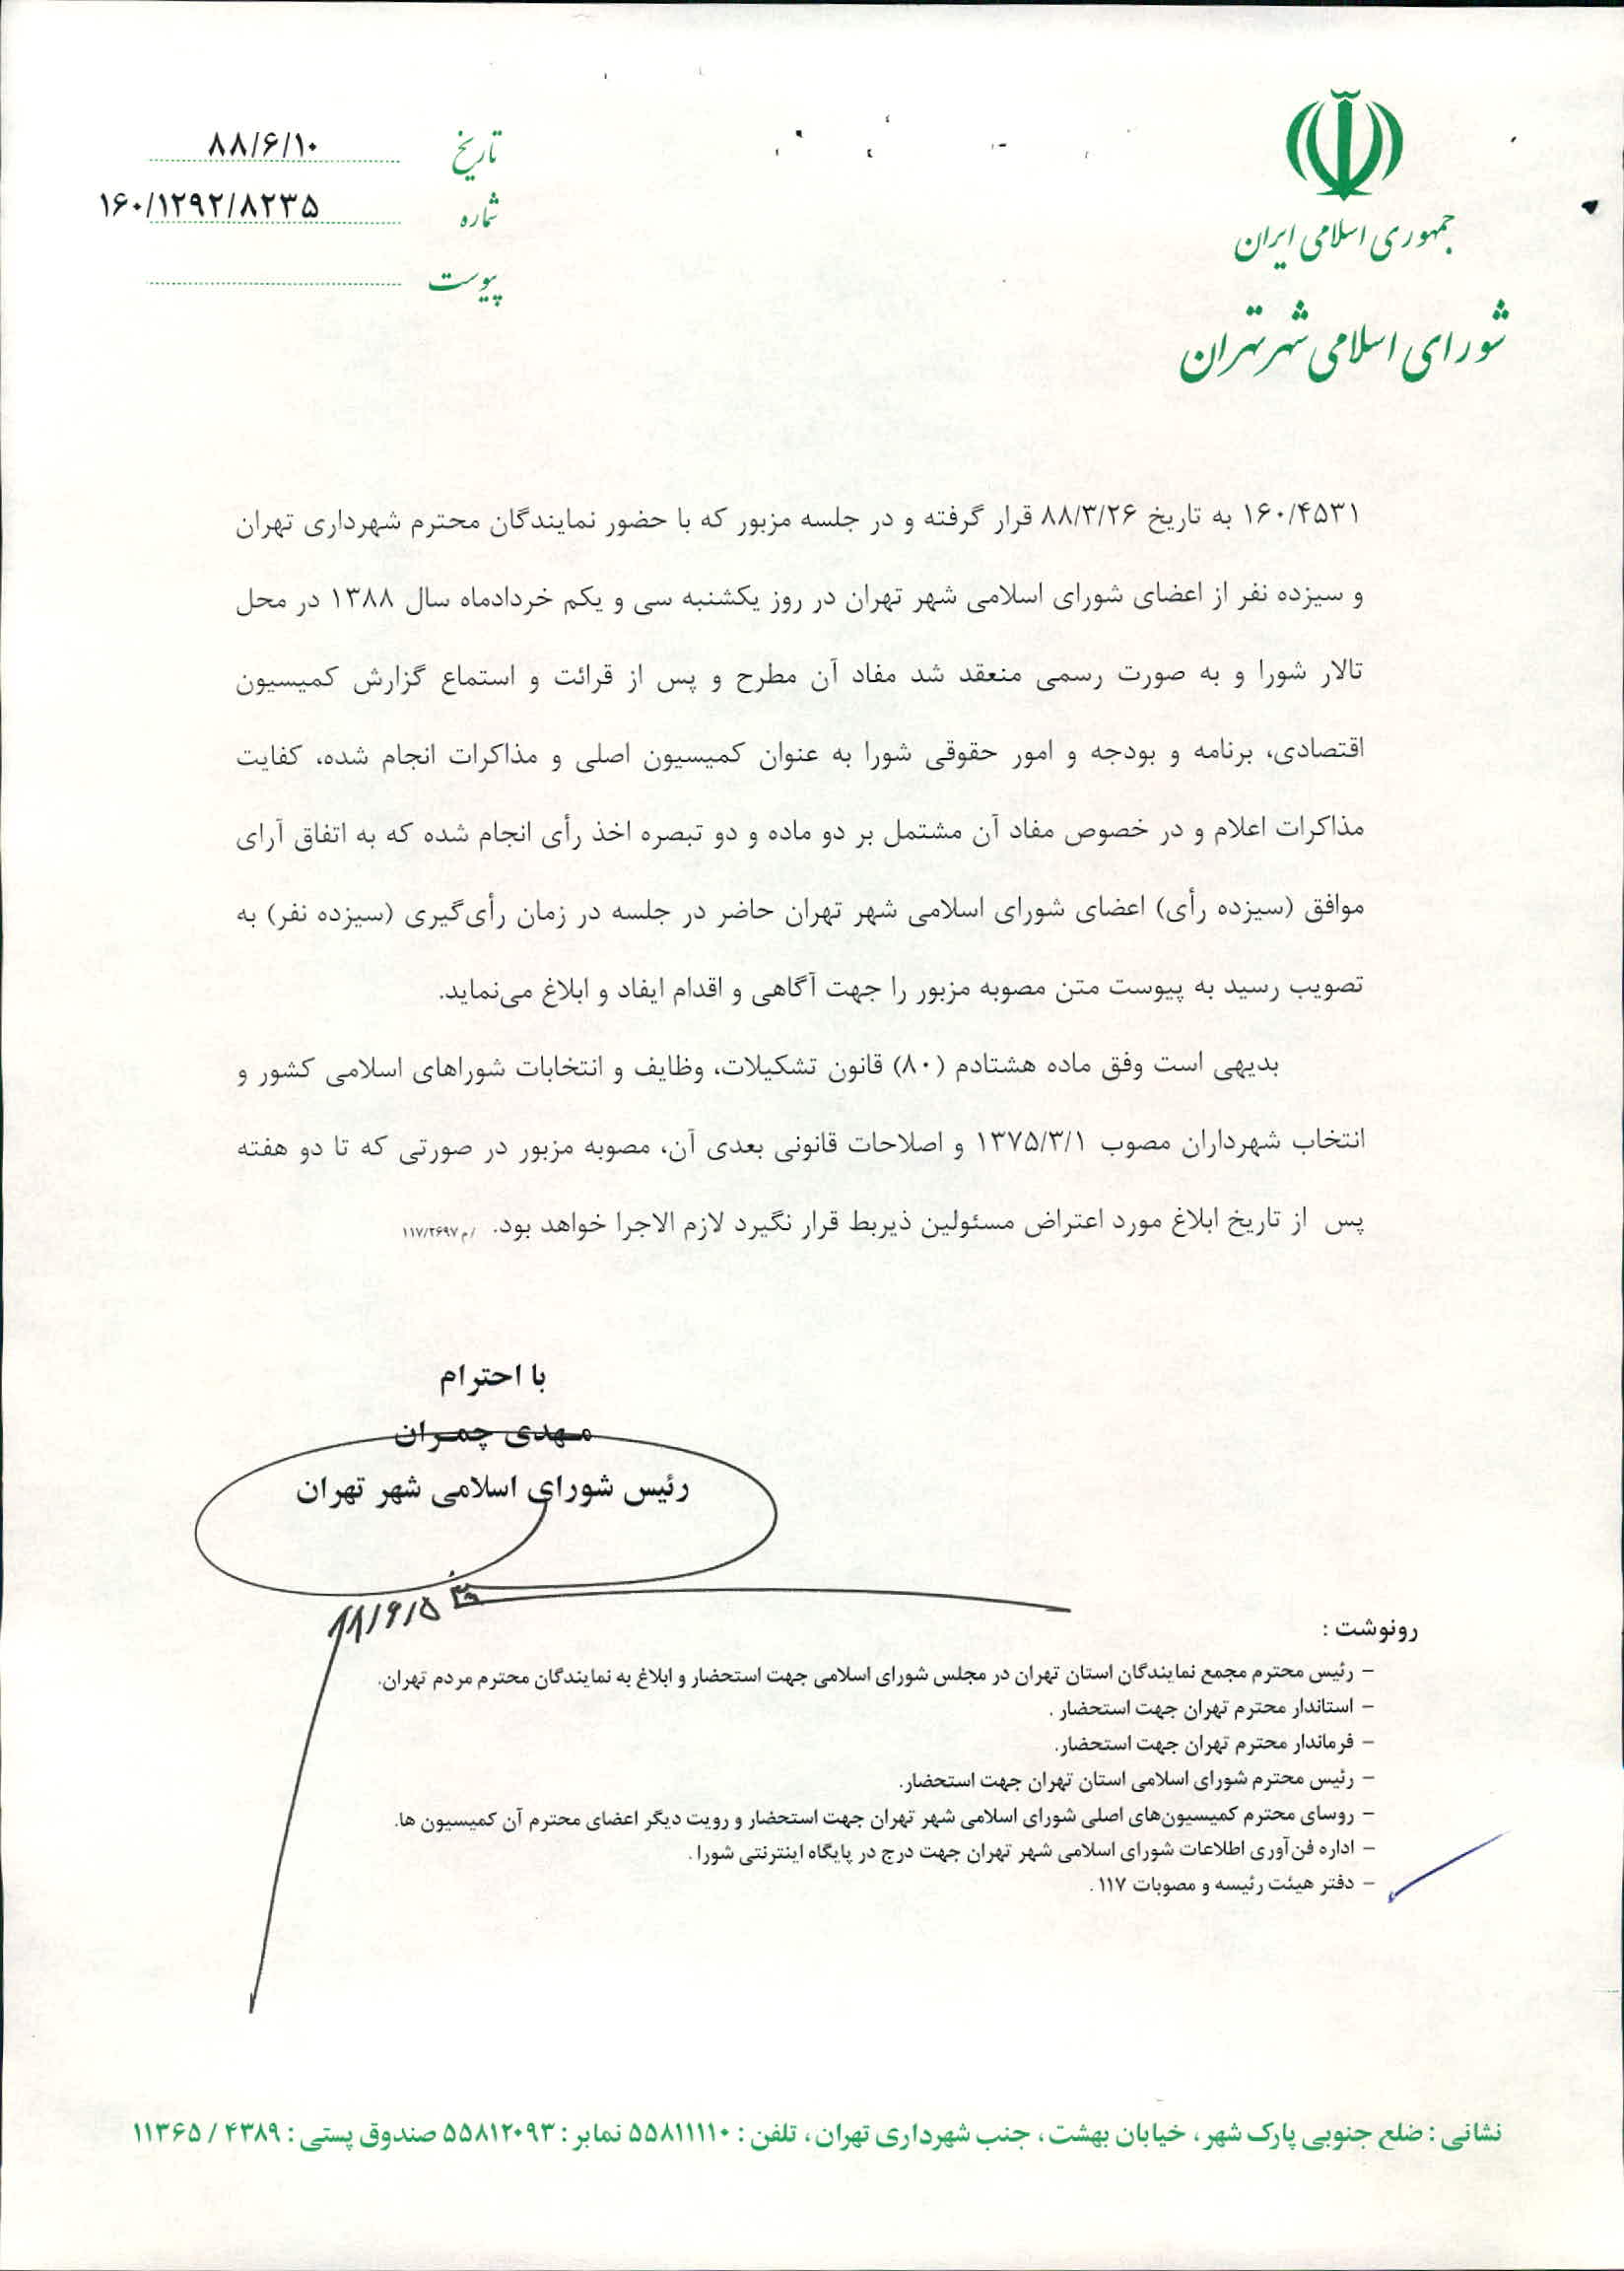 جمهوری اسلامی ایران
شورای اسلامی شهر تهران
تاریخ ۸۸/۶/۱۰
شماره ۱۶۰/۱۲۹۲/۸۲۳۵
پیوست
۱۶۰/۴۵۳۱ به تاریخ ۸۸/۳/۲۶ قرار گرفته و در جلسه مزبور که با حضور نمایندگان محترم شهرداری تهران
و سیزده نفر از اعضای شورای اسلامی شهر تهران در روز یکشنبه سی و یکم خردادماه سال ۱۳۸۸ در محل
تالار شورا و به صورت رسمی منعقد شد مفاد آن مطرح و پس از قرائت و استماع گزارش کمیسیون
اقتصادی، برنامه و بودجه و امور حقوقی شورا به عنوان کمیسیون اصلی و مذاکرات انجام شده، کفایت
مذاکرات اعلام و در خصوص مفاد آن مشتمل بر دو ماده و دو تبصره اخذ رأی انجام شده که به اتفاق آرای
موافق (سیزده رأی) اعضای شورای اسلامی شهر تهران حاضر در جلسه در زمان رأی‌گیری (سیزده نفر) به
تصویب رسید به پیوست متن مصوبه مزبور را جهت آگاهی و اقدام ایفاد و ابلاغ می‌نماید.
بدیهی است وفق ماده هشتادم (۸۰) قانون تشکیلات، وظایف و انتخابات شوراهای اسلامی کشور و
انتخاب شهرداران مصوب ۱۳۷۵/۳/۱ و اصلاحات قانونی بعدی آن، مصوبه مزبور در صورتی که تا دو هفته
پس از تاریخ ابلاغ مورد اعتراض مسئولین ذیربط قرار نگیرد لازم الاجرا خواهد بود. /م ۱۱۷/۲۶۹۷
با احترام
مهدی چمران
رئیس شورای اسلامی شهر تهران
۸۸/۶/۵
رونوشت :
– رئیس محترم مجمع نمایندگان استان تهران در مجلس شورای اسلامی جهت استحضار و ابلاغ به نمایندگان محترم مردم تهران.
– استاندار محترم تهران جهت استحضار .
– فرماندار محترم تهران جهت استحضار.
– رئیس محترم شورای اسلامی استان تهران جهت استحضار.
– روسای محترم کمیسیون‌های اصلی شورای اسلامی شهر تهران جهت استحضار و رویت دیگر اعضای محترم آن کمیسیون ها.
– اداره فن‌آوری اطلاعات شورای اسلامی شهر تهران جهت درج در پایگاه اینترنتی شورا .
– دفتر هیئت رئیسه و مصوبات ۱۱۷ .
نشانی : ضلع جنوبی پارک شهر ، خیابان بهشت ، جنب شهرداری تهران ، تلفن : ۵۵۸۱۱۱۱۰ نمابر : ۵۵۸۱۲۰۹۳ صندوق پستی : ۴۳۸۹ / ۱۱۳۶۵